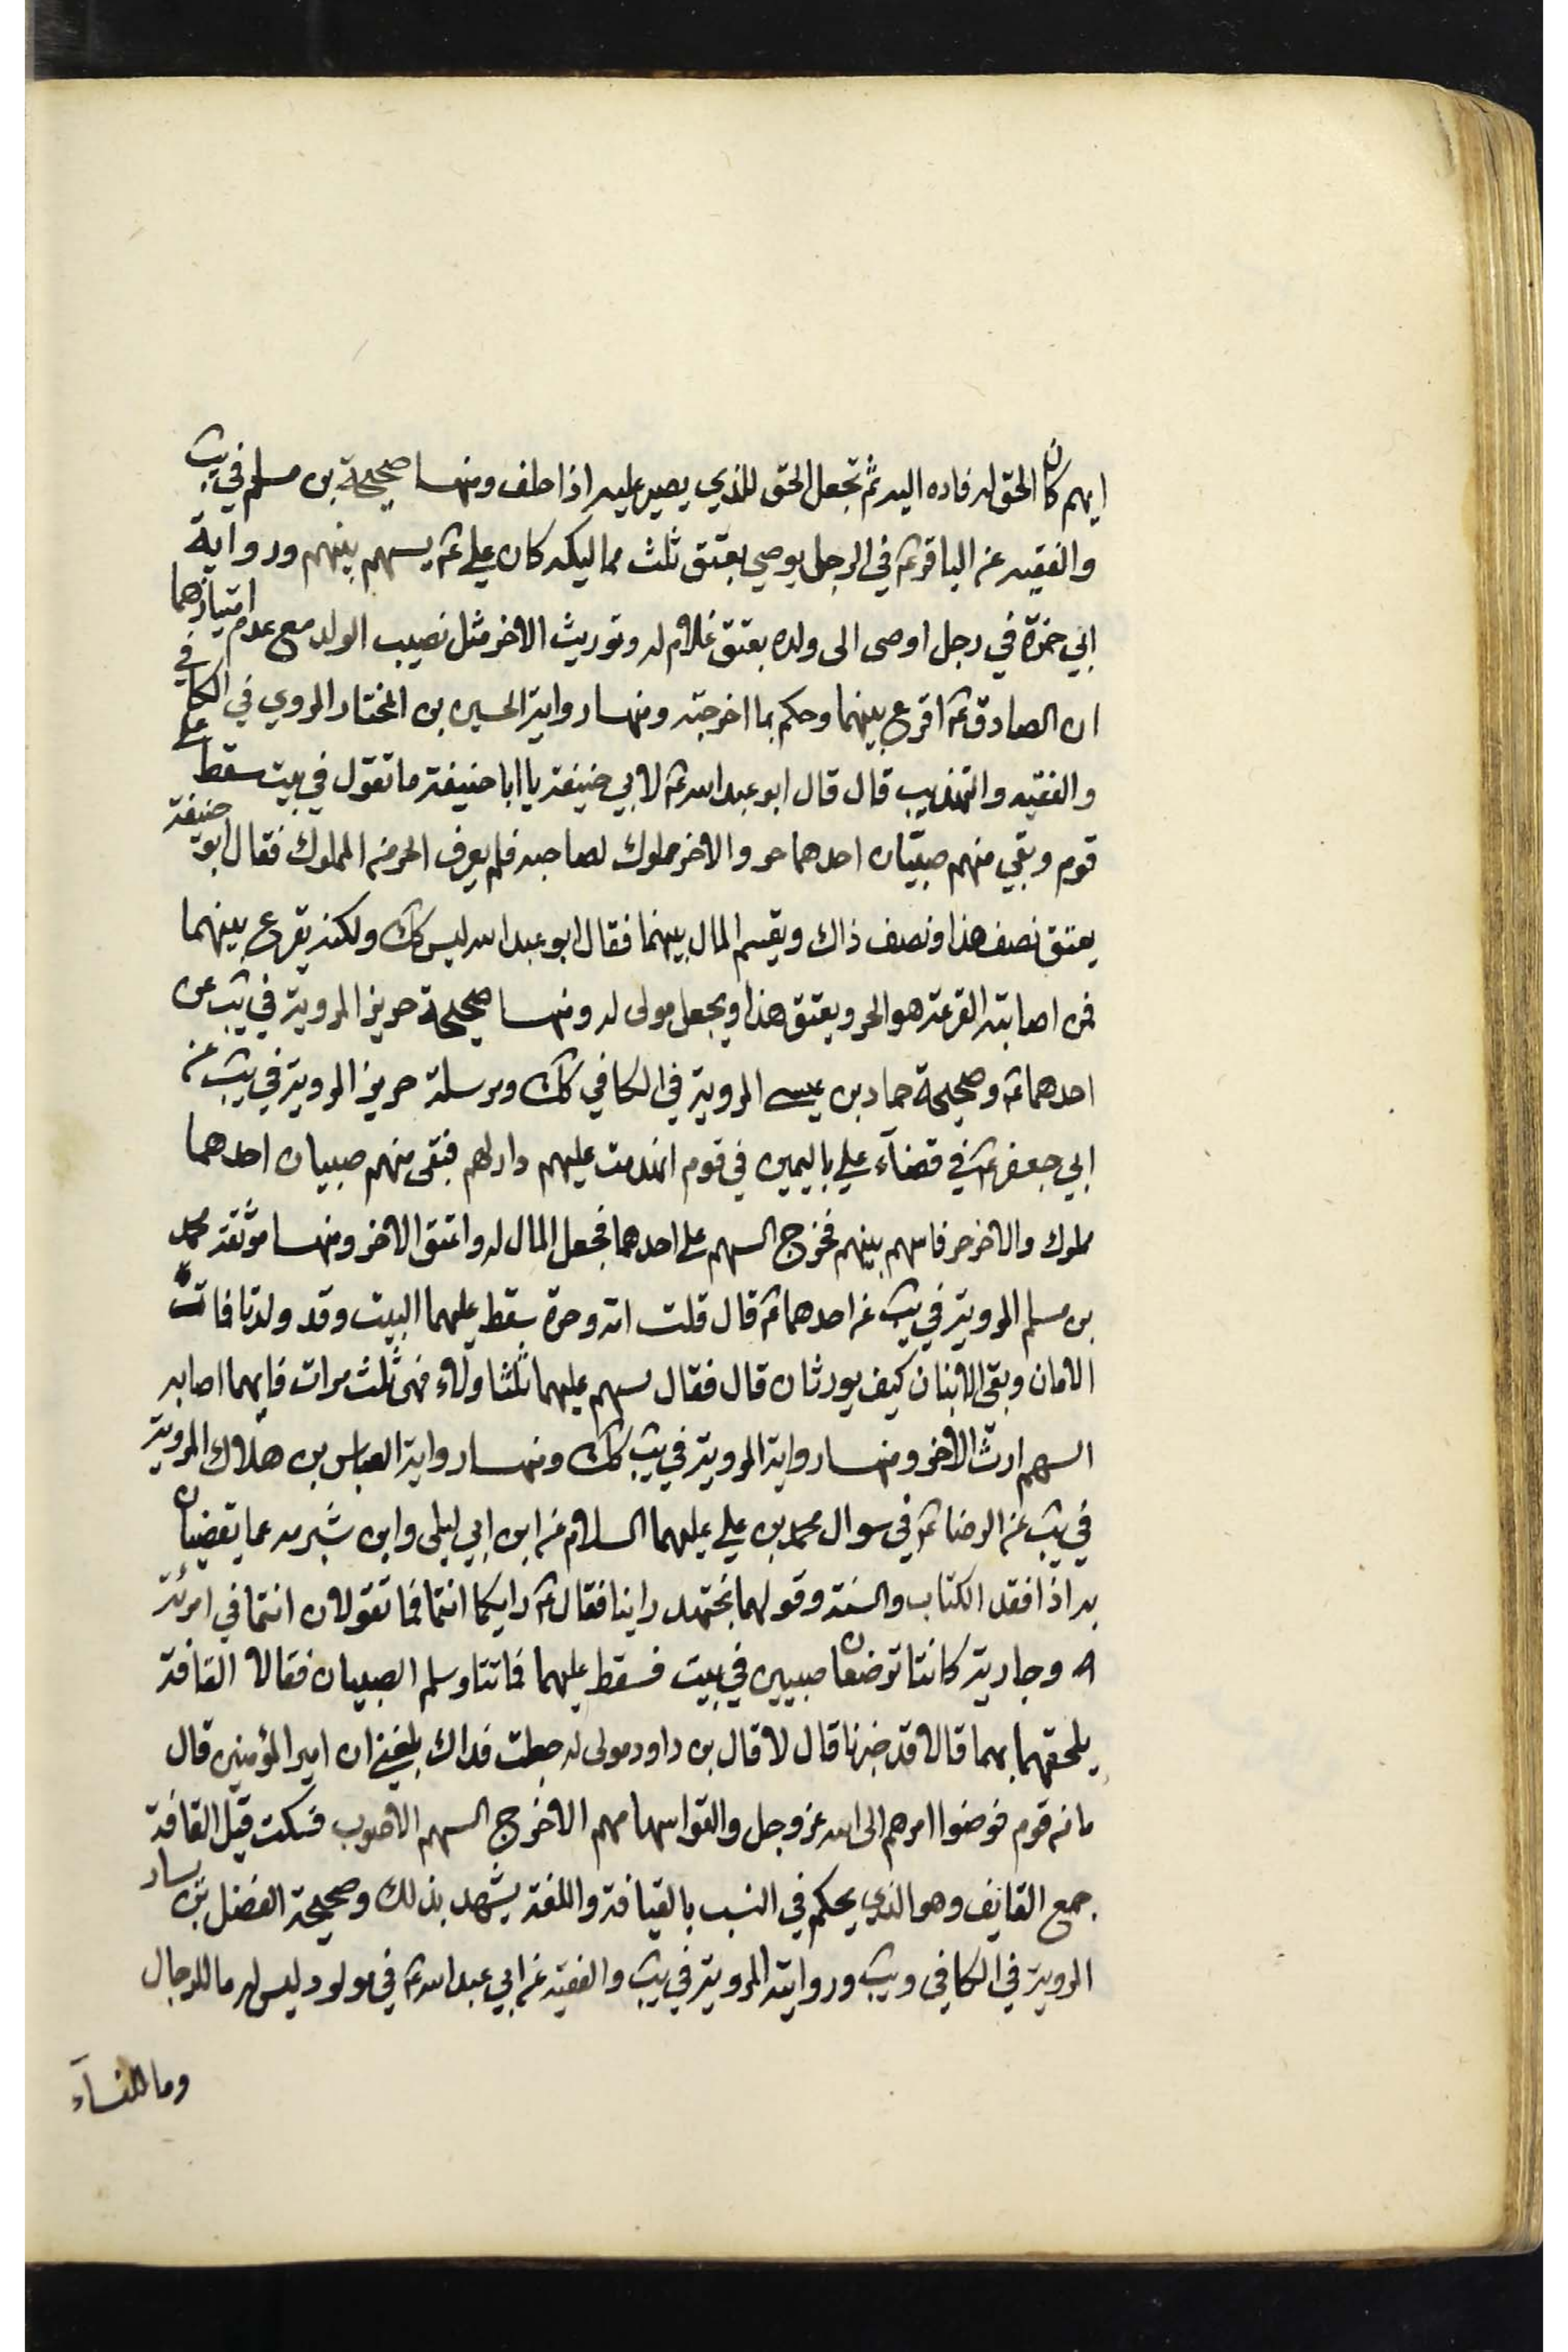 ايهم كان الحق له فاده اليه ثم تجعل الحق للذي يصير عليه اذا حلف ومنها صحيحة بن مسلم في يب
والفقيه عن الباقر ع في الرجل يوصي بعتق ثلث مماليكه كان علي ع يسهم بينهم ورواية
ابي حمزة في رجل اوصى الى ولده بعتق غلام له وتوريث الاخر مثل نصيب الولد مع عدم امتيازهما
ان الصادق ع اقرع بينهما وحكم بما اخرجته ومنها رواية الحسين بن المختار المروي في الكافي
والفقيه والتهذيب قال قال ابو عبد الله ع لابي حنيفة يا ابا حنيفة ما تقول في بيت سقط على
قوم وبقي منهم صبيان احدهما حر والاخر مملوك لصاحبه فلم يعرف الحر من المملوك فقال ابو حنيفة
يعتق نصف هذا ونصف ذاك ويقسم المال بينهما فقال ابو عبد الله ليس كك ولكنه يقرع بينهما
فمن اصابته القرعة هو الحر ويعتق هذا ويجعل مولى له ومنها صحيحة حريز المروية في يب عن
احدهما ع وصحيحة حماد بن عيسى المروية في الكافي كك ومرسلة حريز المروية في يب عن
ابي جعفر ع في قضآء علي باليمين في قوم انهدمت عليهم دارلهم فبقى منهم صبيان احدهما
مملوك والاخر حر فاسهم بينهم فخرج السهم على احدهما فجعل المال له واعتق الاخر ومنها موثقة محمد
بن مسلم المروية في يب عن احدهما ع قال قلت امة وحرة سقط عليهما البيت وقد ولدتا فماتت
الامان وبقى الابنان كيف يورثان قال فقال يسهم عليهما ثلثا ولاء فهى ثلث مرات فايهما اصابه
السهم ادث الاخر ومنها رواية المروية في يب كك ومنها رواية العباس بن هلال المروية
في يب عن الرضا ع في سوال محمد بن علي عليهما السلام عن ابن ابي ليلى وابن شبرمه عما يقضيان
به اذا فقد الكتاب والسنة وقولهما نجتهد راينا فقال ع رايكما انتما فما تقولان انتما في امرئة
ه وجارية كانتا توضعان صبيين في بيت فسقط عليهما فماتتا وسلم الصبيان فقالا القافة
يلحقهما بهما قالا قد خبرنا قال لا قال بن داود مولى له جعلت فداك بلغني ان امير المؤمنين قال
ما من قوم فوضوا امرهم الى الله عز وجل والقوا سهامهم الا خرج السهم الاصوب فسكت قيل القافة
جمع القايف وهو الذي يحكم في النسب بالقيافة واللغة يشهد بذلك وصحيحة الفضل بن يسار
المروية في الكافي ويب وروايته المروية في يب والفقيه عن ابي عبد الله ع في مولود ليس له ما للرجال
وما للنسآء